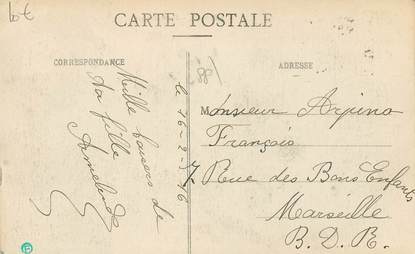 6€
CARTE POSTALE
CORRESPONDANCE
ADRESSE
le 16-2-16
Mille baisers de
ta fille
Monsieur Arpino
François
7 Rue des Bons Enfants
Marseille
B. D. R.